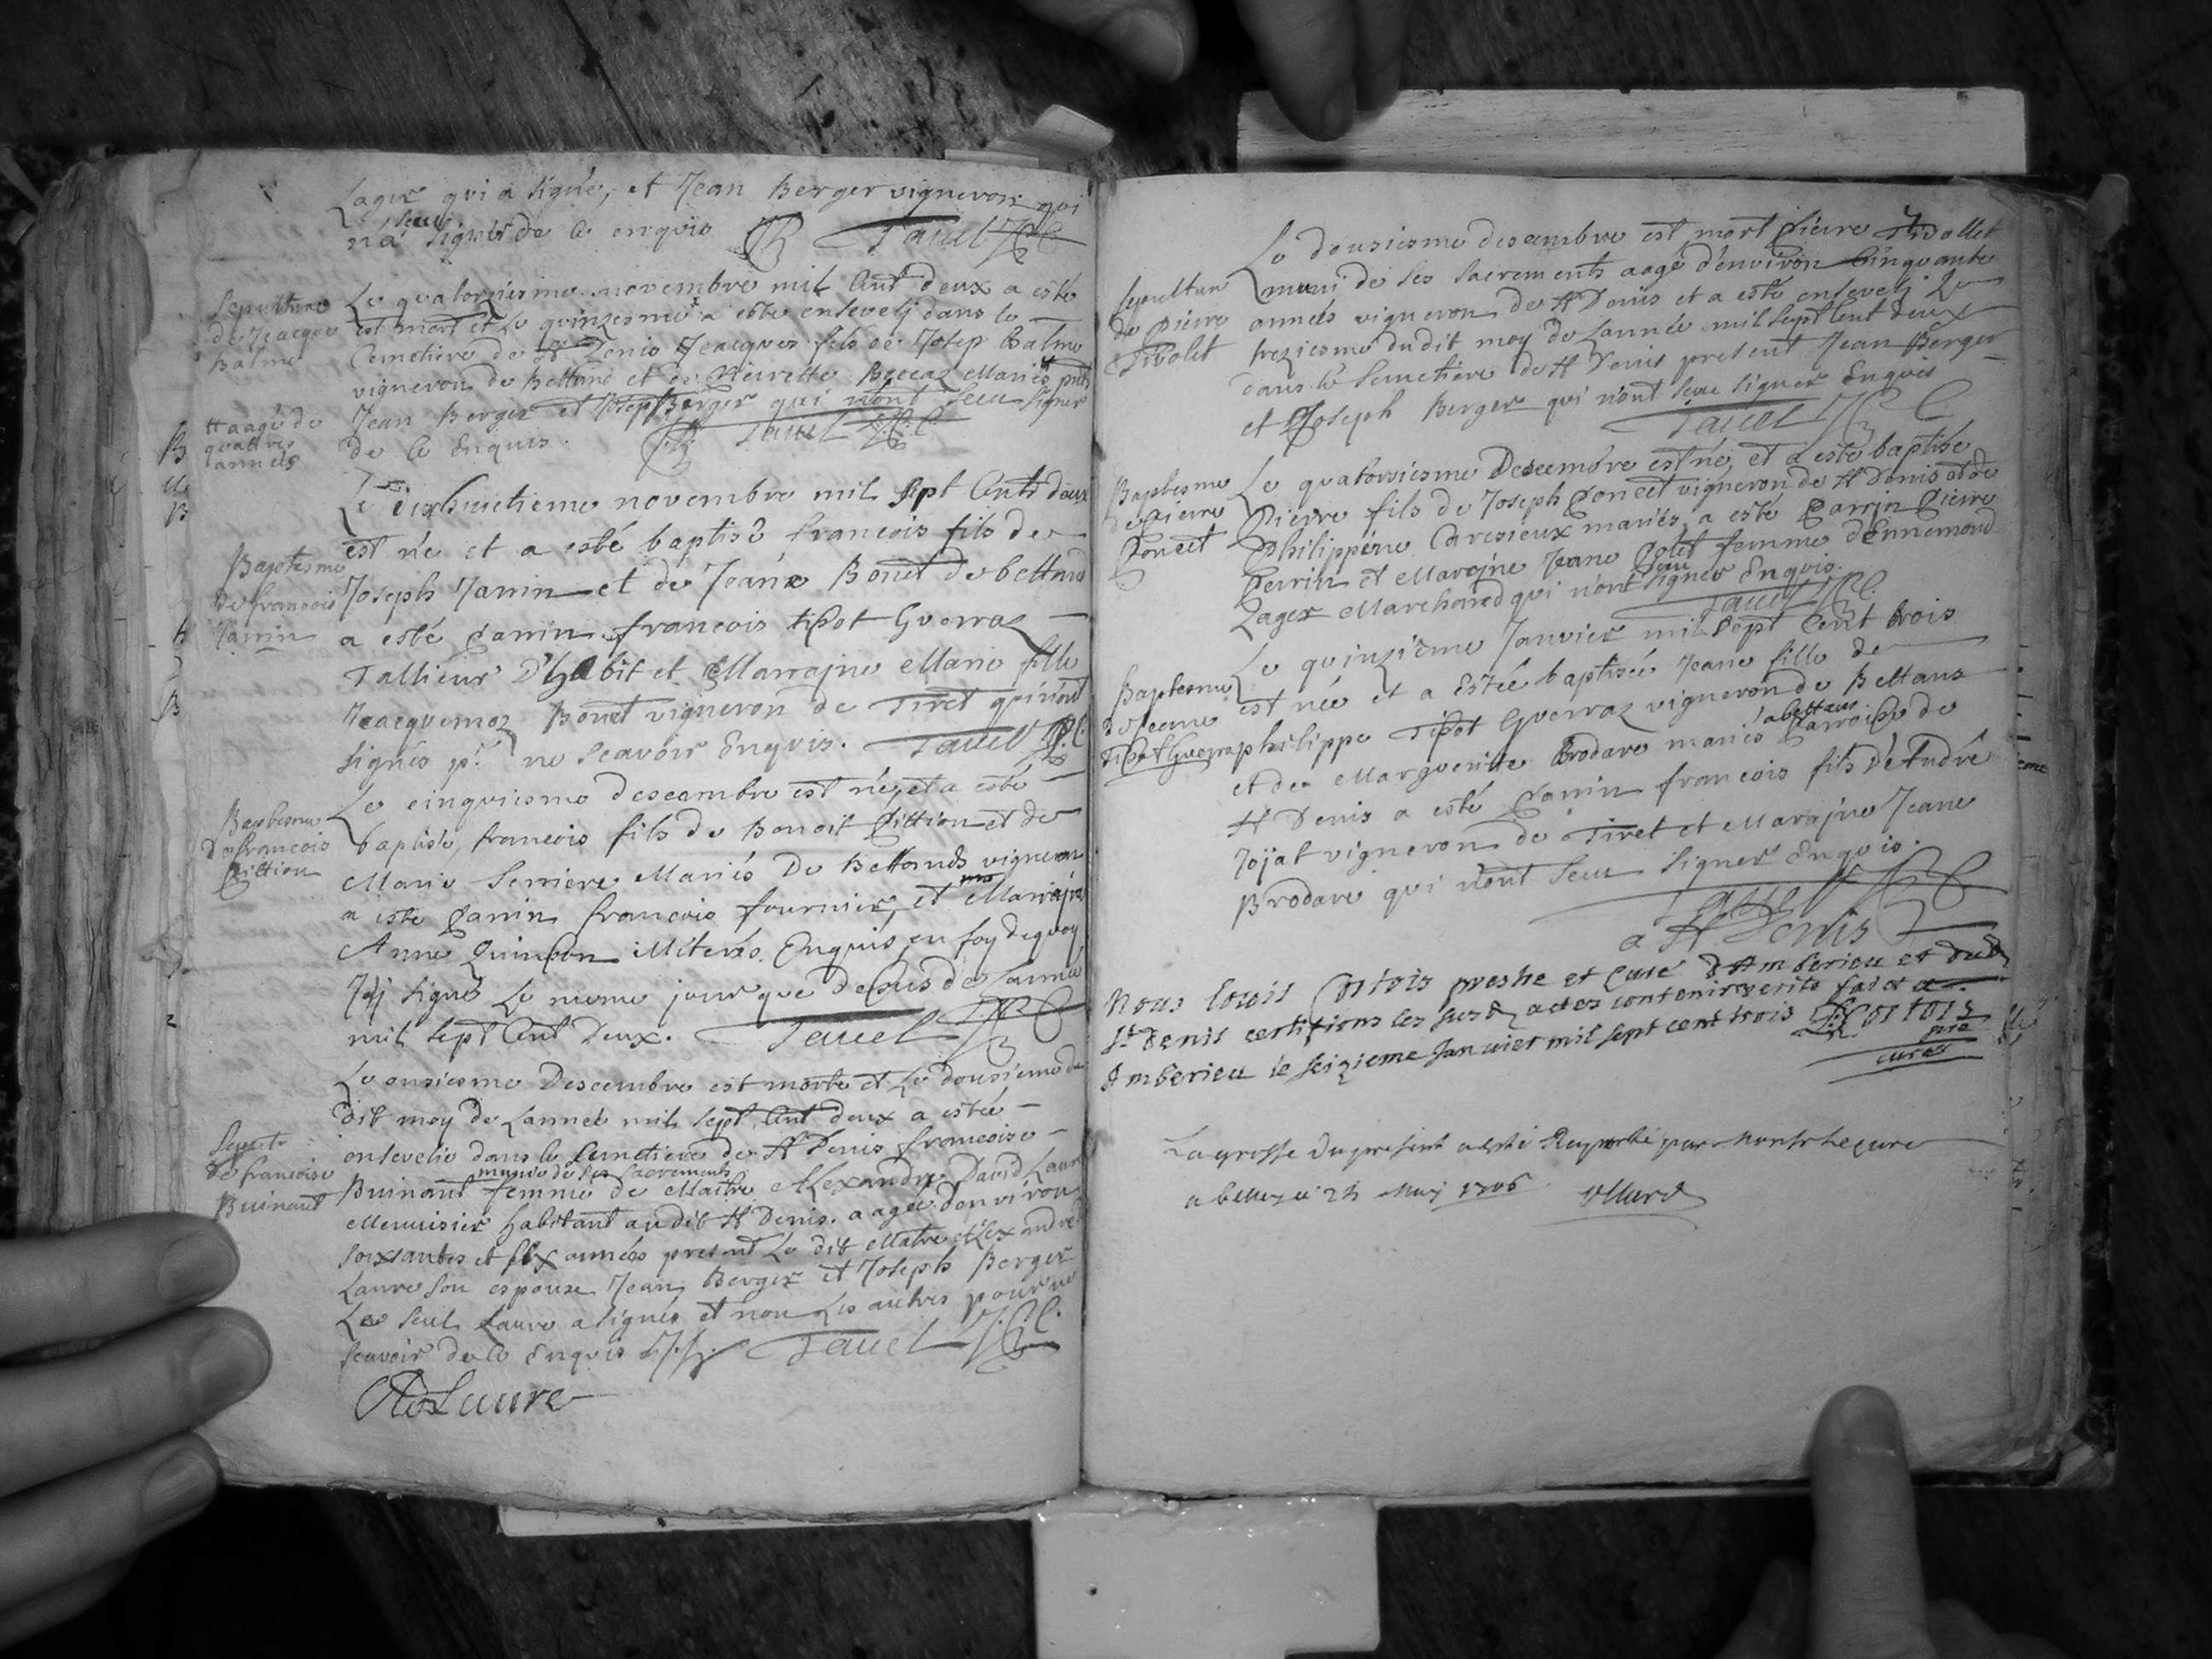 Lager qui a signé, et Jean Berger vigneron qui
n'a sceu signer de ce enquis Tavel
Sepulture de Jeacque Balme
Le quatorziesme novembre mil cent deux a esté
est mort et Le quinzesme a esté enseveli dans le
Cemetiere de St Denis Jeacques fils de Josep Balme
vigneron de Bettand et de Pierrette Beccaz Mariés
Jean Berger et Josep Berger qui n'ont sceu signer
de ce Enquis. Tavel
aagé de quatres années
Baptesme de francois Janin
Le dixhuictieme novembre mil sept Cents deux
est né et a esté baptisé francois fils de
Joseph Janin et de Jeane Bonet de bettand
a esté parrin francois tipot Guerraz
Tallieur D'habit et Marrajne Marie fille
Jeacquemoz Bonet vigneron de Tiret qui n'ont
signés pr ne scavoir Enquis. Tavel
Baptesme de francois Pittion
Le cinquiesme descembre est né, et a esté
baptisé, francois fils de Benoit Pittion et de
Marie Serriere Mariés De Bettands vigneron
a esté parrin francois fournier, et Marrajne
Anne Quinson Miterés Enquis, en foy dequoy
J'aj signé Le meme jour que Dessus de Lannée
mil sept Cent Deux. Tavel
Sepult de francoise Buinant
Le onsiesme Descembre est morte et Le dousieme du
dit moy de Lannée mil sept Cent deux a estée
ensevelie dans le Cemetiere de St Denis francoise
munie de ses sacrements
Buinant femme de Maitre Alexandre David Laure
Menuisier habitant audit St Denis. aagée d'environ
soixsantes et six années present Le dit Maitre Alexandre
Laure son espoux Jean Berger et Joseph Berger
Le seul Laure a signés et non Les autres pour ne
scavoir de ce Enquis Tavel
Laure
Sepulture de Pierre Tivolet
Le dousiesme descembre est mort Pierre Tivollet
muni de ses sacrements aagé d'environ Cinquante
années vigneron de St Denis et a esté enseveli Le
treziesme dudit moy de Lannée mil sept Cent deux
dans le semetiere de St Denis present Jean Berger
et Joseph Berger qui n'ont sceu signer Enquis
Tavel
Baptesme de pierre Poncet
Le quatorsiesme Descembre est né, et a esté baptisé
Pierre fils de Joseph Poncet vigneron de St Denis et de
Philippéne Caresieux mariés, a esté Parrin Pierre
Perrin et Marajne Jeane Polet femme d'Ennemond
Lager Marchand qui n'ont sceu signer Enquis.
Tavel
Baptesme de Jeane Tipot Guerraz
Le quinziême Janvier mil sept Cent trois
est née et a Estée baptisée Jeane fille de
philippe Tipot Guerraz vigneron de Bettans
et de Marguerite Brodare mariés a bettans Parroisse de
St Denis a esté Parrin francois fils D'André
Jojat vigneron de Tiret et Marajne Jeane
Brodare qui n'ont sceu signer Enquis.
Tavel
a St Denis
Nous Lowis Cortois prestre et Curé d'Amberieu et dud
St Denis certifions les susd actes contenir verité fait a
Amberieu le seizieme Janvier mil sept cent trois Cortois
curé
La grosse du present a esté Raporté par Monsr Le curé
a belley ce 24 May 1706